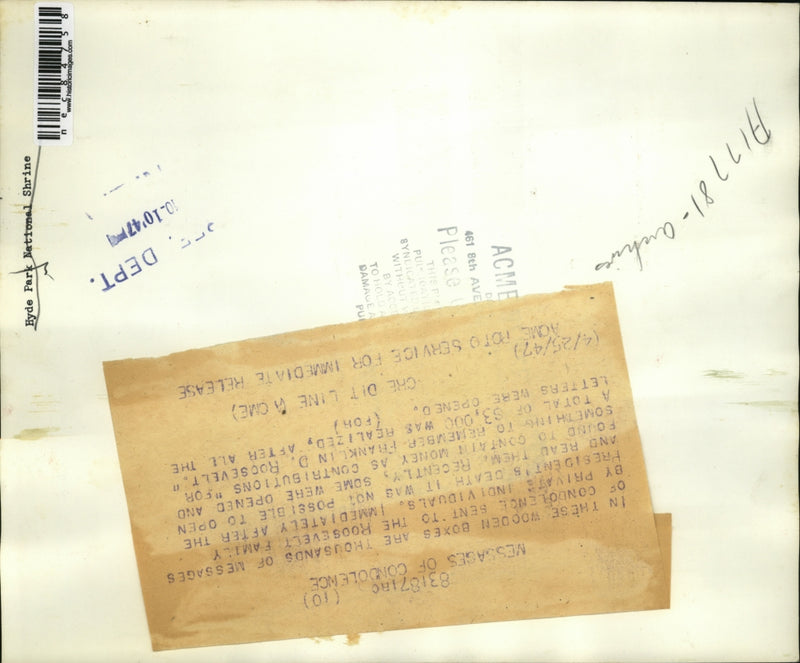 nec84758
www.historicimages.com
Hyde Park National Shrine
DEPT.
10-10'47PM
A17781-Archive
ACME
461 8th AVE
Please
DAMAGE A
(10)
831871RC
MESSAGES OF CONDOLENCE
IN THESE WOODEN BOXES ARE THOUSANDS OF MESSAGES
OF CONDOLENCE SENT TO THE ROOSEVELT FAMILY
BY PRIVATE INDIVIDUALS. IMMEDIATELY AFTER THE
PRESIDENT'S DEATH IT WAS NOT POSSIBLE TO OPEN
AND READ THEM. RECENTLY, SOME WERE OPENED AND
FOUND TO CONTAIN MONEY AS CONTRIBUTIONS "FOR
SOMETHING TO REMEMBER FRANKLIN D. ROOSEVELT."
A TOTAL OF $3,000 WAS REALIZED, AFTER ALL THE
LETTERS WERE OPENED. (FOR)
CRE DIT LINE (A CME)
ACME ROTO SERVICE FOR IMMEDIATE RELEASE
(4/25/47)